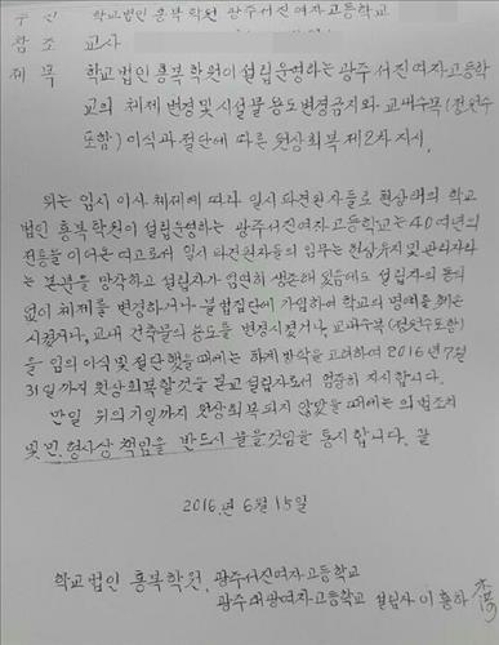 수신 학교법인 홍복학원 광주서진여자고등학교
참조 교사
제목 학교법인 홍복학원이 설립운영하는 광주서진여자고등학
교의 체제변경및시설물용도변경금지와 교내수목(정원수
포함)이식과절단에 따른 원상회복 제2차지시.
위는 임시이사 체제에 따라 일시파견된자들로 현상태의 학교
법인 홍복학원이 설립운영하는 광주서진여자고등학교는 40여년의
전통을 이어온 여고로서 일시파견된자들의 임무는 현상유지및관리자라
는 본분을 망각하고 설립자가 엄연히 생존해 있음에도 설립자의 동의
없이 체제를 변경하거나 불법집단에 가입하여 학교의 명예를 훼손
시켰거나, 교내 건축물의 용도를 변경시켰거나, 교내수목(정원수포함)
을 임의 이식및절단했을때에는 하계방학을 고려하여 2016년7월
31일까지 원상회복할것을 본교설립자로서 엄중히 지시합니다.
만일 위의기일까지 원상회복되지 않았을때에는 의법조치
및 민.형사상 책임을 반드시 물을것임을 통지합니다. 끝
2016.년 6월 15일
학교법인 홍복학원. 광주서진여자고등학교
광주대광여자고등학교 설립자 이홍하